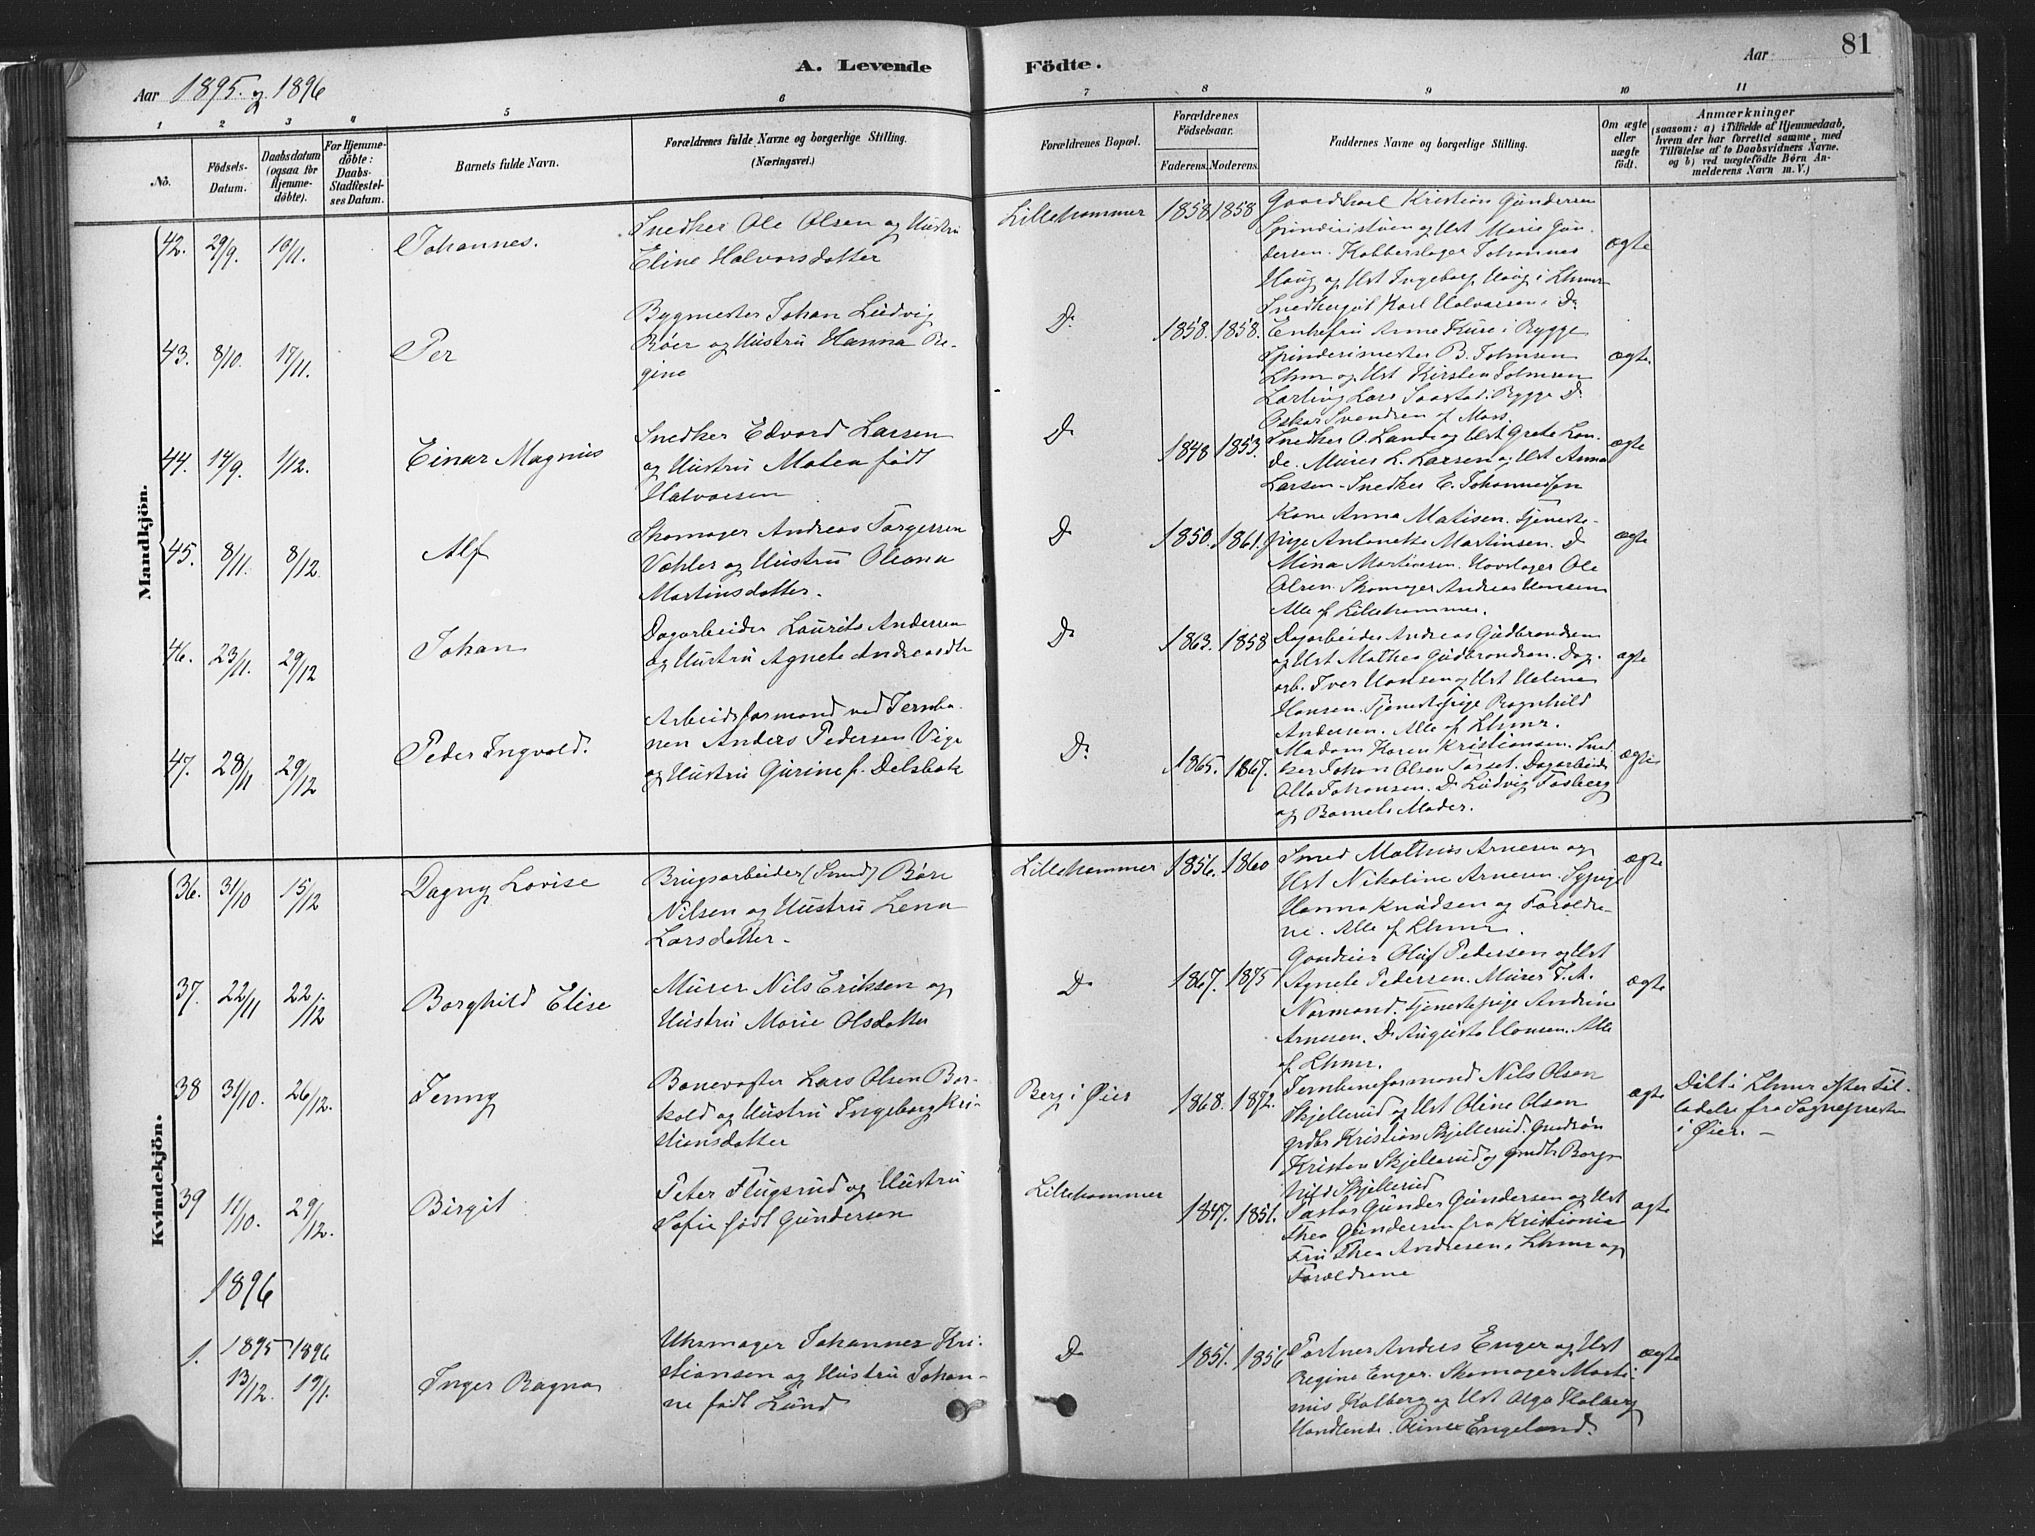 81
Aar 1895. og 1896
A. Levende
Födte.
Aar
1 2 3 4 5 6 7 8 9 10 11
No.
Födsels-Datum.
Daabsdatum (ogsaa for Hjemme-döbte).
For Hjemme-döbte: Daabs-Stadfæstel-ses Datum.
Barnets fulde Navn.
Forældrenes fulde Navne og borgerlige Stilling.
(Næringsvei.)
Forældrenes Bopæl.
Forældrenes Födselsaar.
Faderens. Moderens.
Faddernes Navne og borgerlige Stilling.
Om ægte eller uægte födt.
Anmærkninger
(saasom: a) i Tilfælde af Hjemmedaab,
hvem der har forrettet samme, med
Tilföielse af to Daabsvidners Navne.
og b) ved uægtefödte Børn An-
melderens Navn m. V.)
Mandkjön.
42. 29/9. 10/11. Johannes.
Snedker Ole Olsen og Hustru
Eline Halvorsdatter
Lillehammer 1858 1858
Gaardkarl Kristian Gundersen
Spinderistuen og Hst Marie Gun-
dersen. Kobberslager Johannes
Haug og Hst Ingeborg Haug i Lhmr
Snedkergut Karl Halvorsen. Do
ægte
43. 8/10. 17/11. Per
Bygmester Johan Ludvig
Röer og Hustru Hanna Re-
gine
Do 1858. 1858.
Enkefru Anne Kure i Rygge
Spinderimester B. Johnsen
Lhm og Hst Kirsten Johnsen
Lars Saastad i Rygge Do
Oskar Svendsen af Moss.
ægte.
44. 14/9. 1/12. Einar Magnus
Snedker Edvard Larsen
og Hustru Matea födt
Halvorsen
Do 1848 1853.
Snedker O. Lande og Hst Grete Lan-
de. Murer L. Larsen og Hst Anna
Larsen. Snedker E. Johannessen
ægte
45. 8/11. 8/12. Alf
Skomager Andreas Torgersen
Vahler og Hustru Oleana
Martinsdatter.
Do 1850. 1861.
Kone Anna Matisen. Tjeneste-
pige Antonette Martinsen. Do
Mina Martinsen. Hovslager Ole
Olsen. Skomager Andreas Hansen
Alle af Lillehammer.
ægte
46. 23/11. 29/12 Johan
Dagarbeider Laurits Andersen
og Hustru Agnete Andreasdtr
Do 1863. 1858
Dagarbeider Andreas Gudbrandsen
og Hst Mathea Gudbrandsen. Dag-
arb. Iver Hansen og Hst Helene
Hansen. Tjenestepige Ragnhild
Andersen. Alle af Lhmr.
ægte
47. 28/11 29/12 Peder Ingvald.
Arbeidsformand ved Jernba-
nen Anders Pedersen Vige
og Hustru Gurine f. Delsbak
Do 1865. 1867.
Madam Karen Kristiansen. Sned-
ker Johan Olsen Torset. Dagarbeider
Otto Johansen. Do Ludvig Fosberg
og Barnets Moder.
ægte
Kvindekjön.
36. 31/10 15/12 Dagny Lovise
Brugsarbeider (Smed) Böre
Nilsen og Hustru Lena
Larsdatter.
Lillehammer 1856. 1860
Smed Mathias Arnesen og
Hst Nikoline Arnesen. Sypige
Hanna Knudsen og Foraldre-
ne. Alle af Lhmr.
ægte
37. 22/11 22/12 Borghild Elise
Murer Nils Eriksen og
Hustru Marie Olsdatter
Do 1867. 1875
Olaf Pedersen og Hst
Agnete Pedersen. Murer T. A.
Normand. Tjenestepige Andrine
Arnesen. Do Augusta Hansen. Alle
af Lhmr.
ægte
38 31/10. 26/12. Jenny
Banevogter Lars Olsen Bor-
kold og Hustru Ingeborg Kri-
stiansdatter
Berg i Øier 1868. 1872.
Jernbaneformand Nils Olsen
Skjellerud og Hst Oline Olsen
grdbr Kristian Skjellerud. Gudrun
Kristen Skjellerud og grdtr Borg-
hild Skjellerud
ægte
Döbt i Lhmr efter Til-
ladelse fra Sognepresten
i Øier. -
39 11/10. 29/12. Birgit
Peter Flugsrud og Hustru
Sofie födt Gundersen
Lillehammer 1847. 1851.
Pastor Gunder Gundersen og Hst
Thea Gundersen fra Kristiania
Fru Thea Andresen i Lhmr og
Foraldrene
ægte
1896
1. 1895 13/12. 1896 19/1. Inger Ragna
Uhrmager Johannes Kri-
stiansen og Hustru Johan-
ne födt Lund
Do 1851. 1856
Gartner Anders Enger og Hst
Regine Enger. Skomager Marti-
nus Kolberg og Hst Olga Kolberg
Handlende. Oline Engeland.
ægte